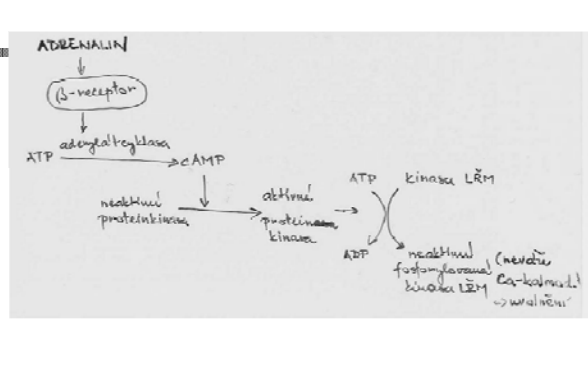 ADRENALIN
β-receptor
adenylátcyklasa
ATP → cAMP
neaktivní
proteinkinasa
aktivní
protein
kinasa
ATP
kinasa LŘM
ADP
neaktivní
fosforylovaná
kinasa LŘM
(neváže
Ca-kalmod.
→ uvolnění